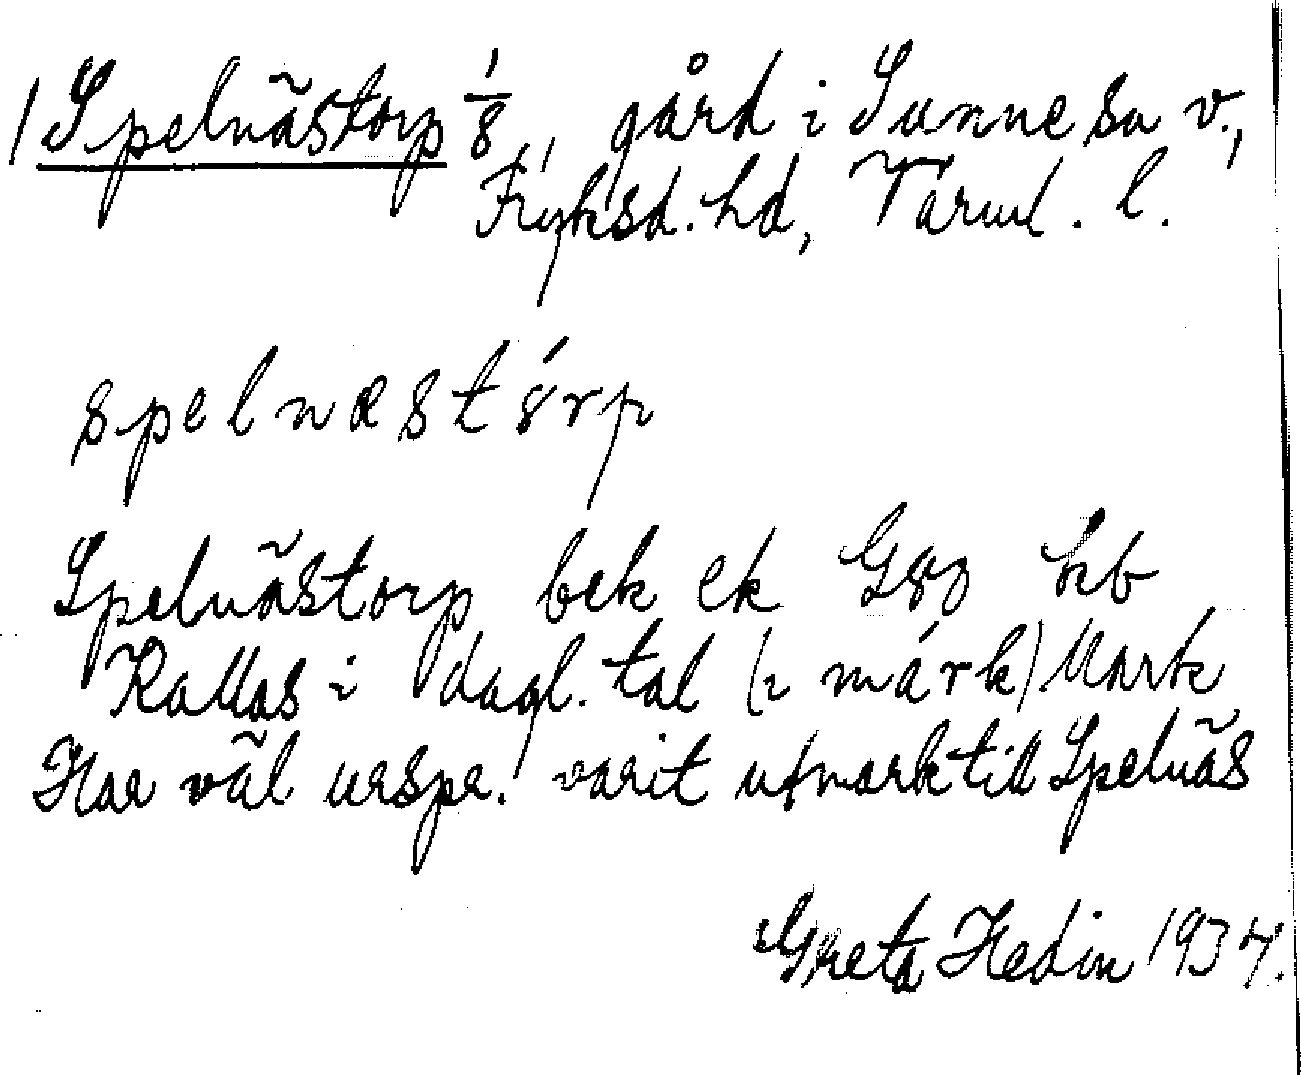 1 Spelnästorp 1/8, gård i Sunne sn v.,
Fryksd. hd, Värml. l.
spelnæstórp
Spelnästorp bek ek Gäo kb
Kallas i dagl. tal (i márk) Mark
Har väl urspr. varit utmark till Spelnäs
Greta Hedin 1934.